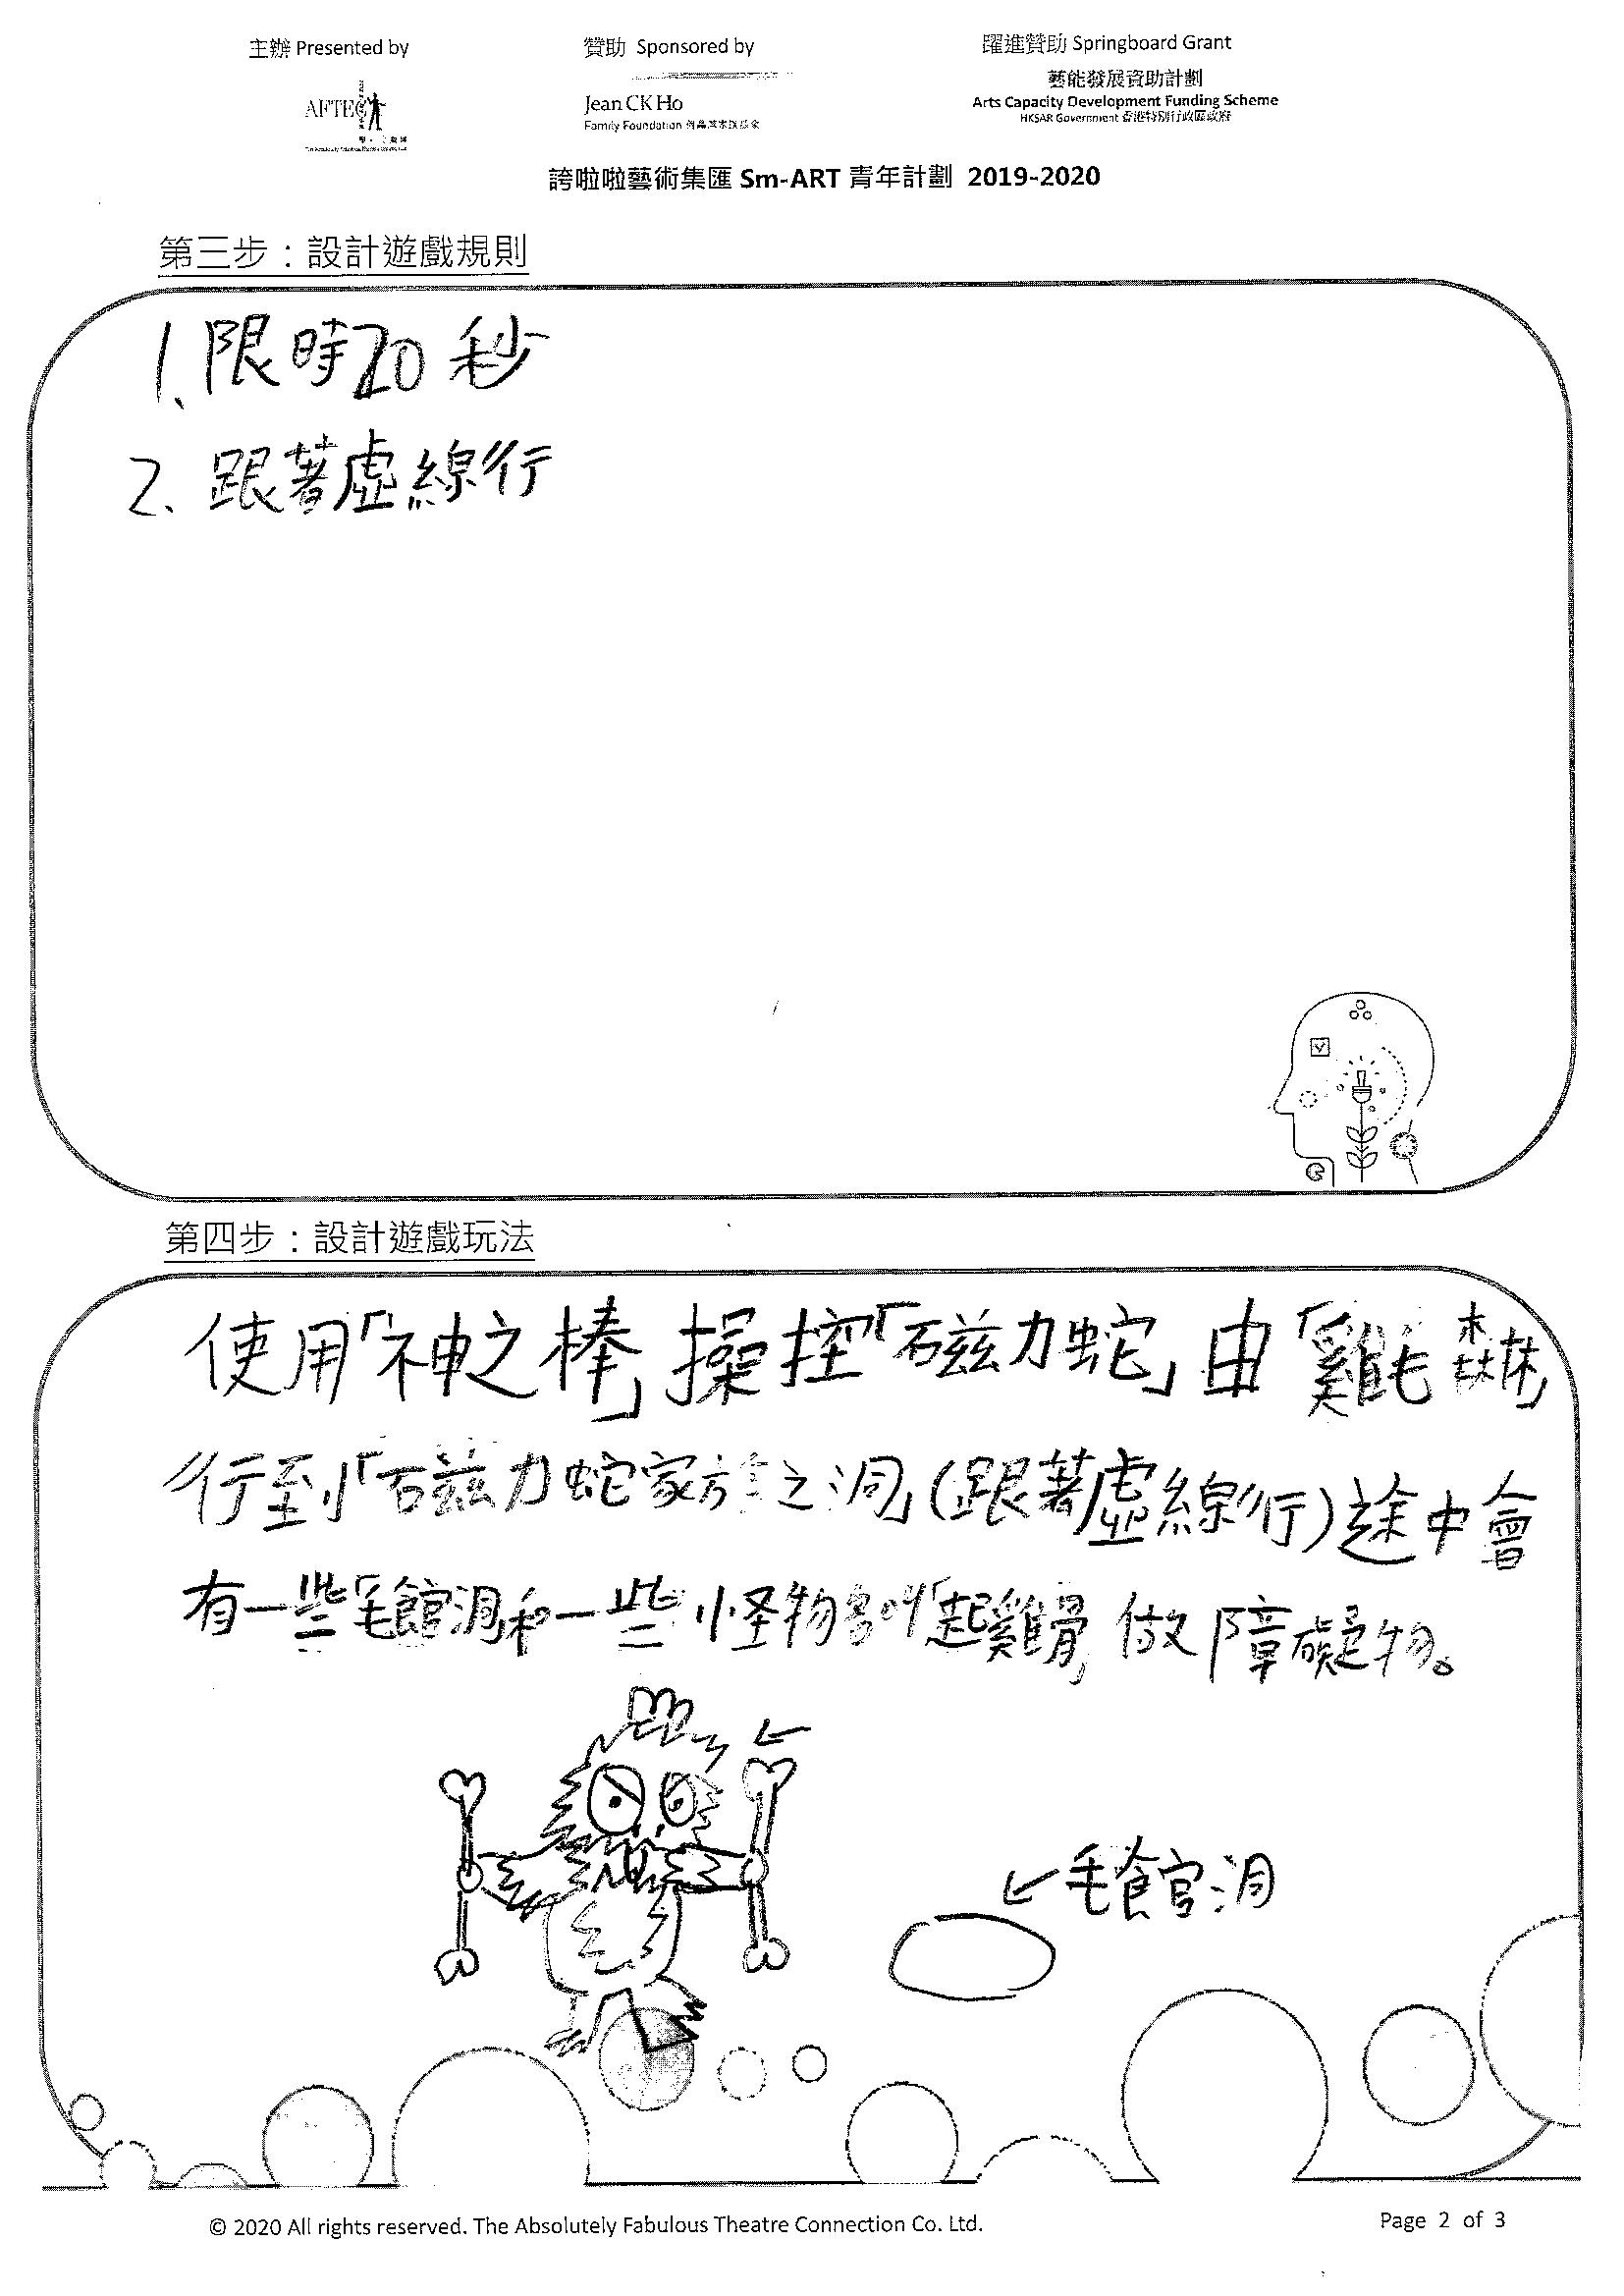 主辦 Presented by
贊助 Sponsored by
躍進贊助 Springboard Grant
AFTEC
Jean CK Ho
Family Foundation
藝能發展資助計劃
Arts Capacity Development Funding Scheme
HKSAR Government 香港特別行政區政府
誇啦啦藝術集匯 Sm-ART 青年計劃 2019-2020
第三步：設計遊戲規則
1、限時20秒
2、跟著虛線行
第四步：設計遊戲玩法
使用「神之棒」操控「磁力蛇」由「雞毛森林」
行到「磁力蛇家族之洞」(跟著虛線行)途中會
有一些「毛館洞和一些怪物名叫「起雞骨」做障礙物。
←毛館洞
© 2020 All rights reserved. The Absolutely Fabulous Theatre Connection Co. Ltd.
Page 2 of 3